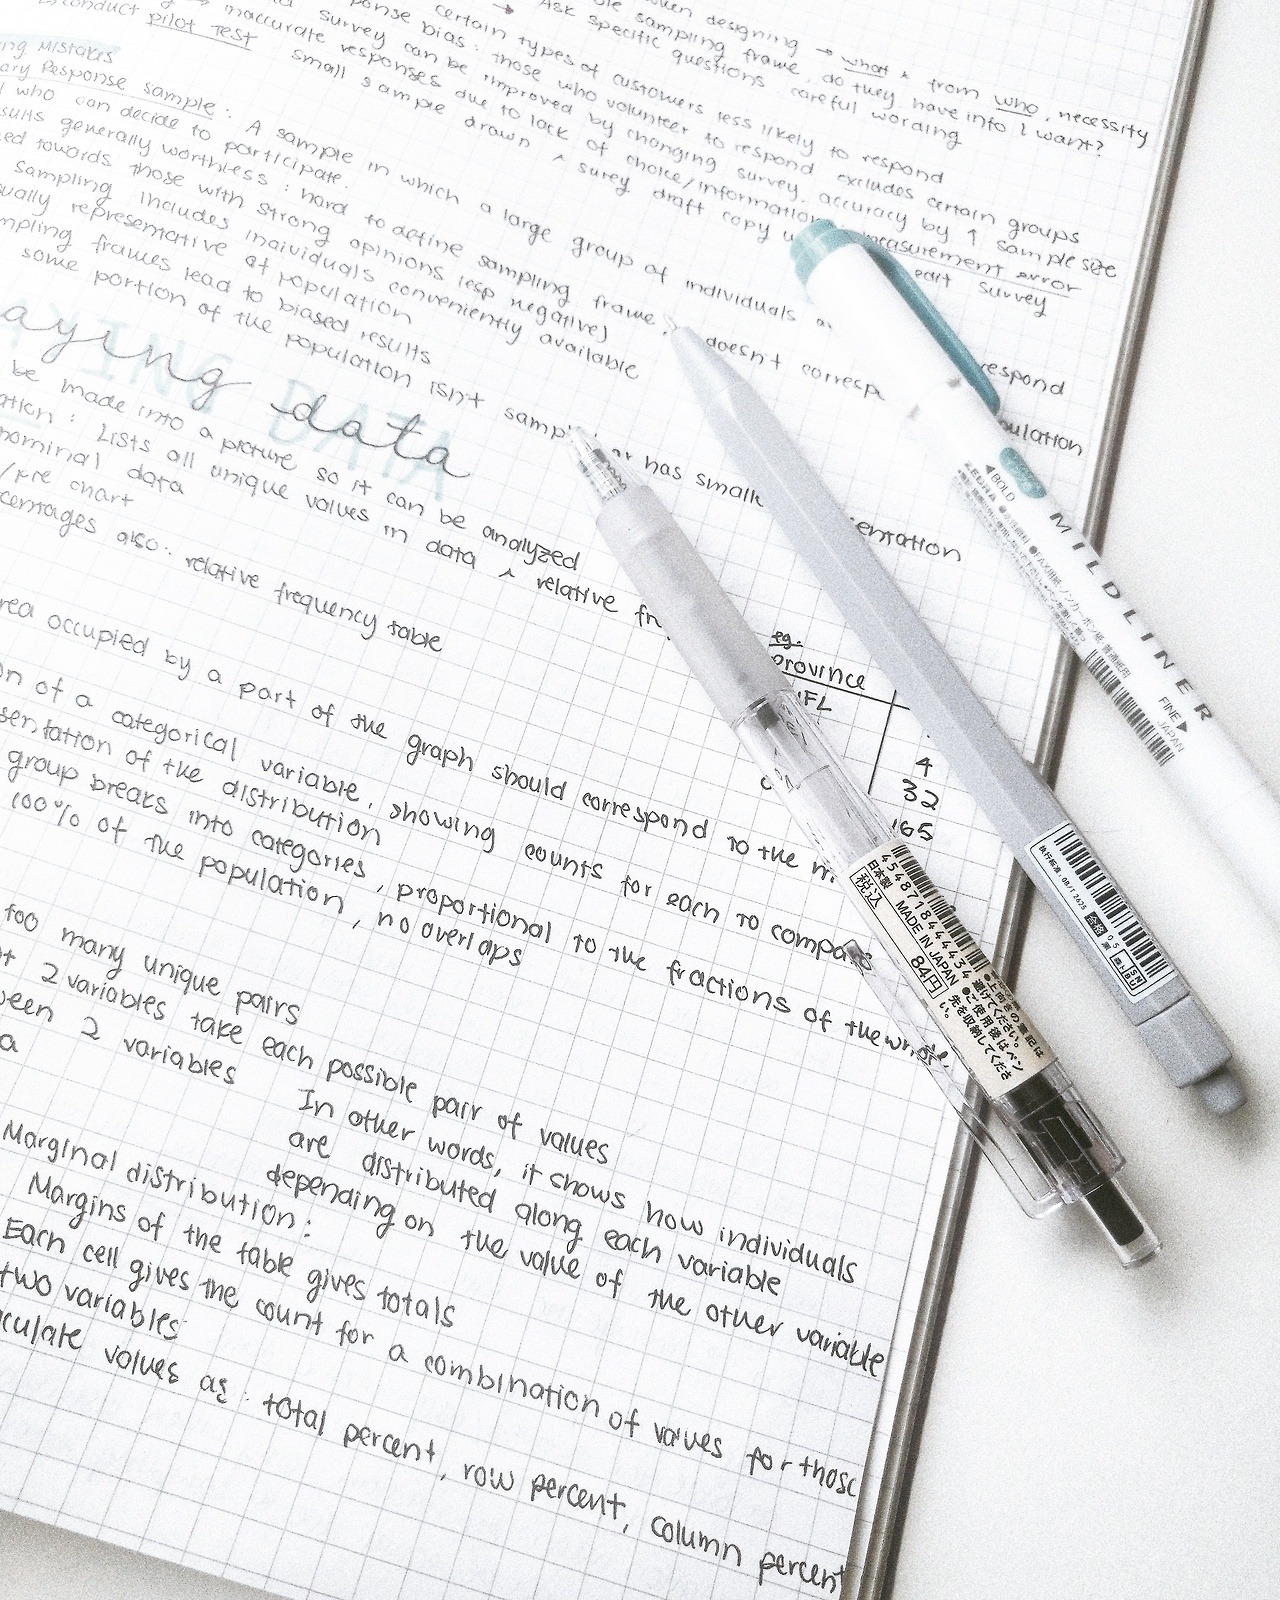 when designing → what & from who, necessity
sampling frame, do they have info I want?
Ask specific questions, careful wording
certain types of customers less likely to respond
ponse bias: those who volunteer to respond excludes certain groups
survey can be improved by changing survey, accuracy by ↑ sample size
inaccurate responses due to lack of choice/information measurement error
conduct pilot test small sample drawn ^ surey draft copy edit survey
ng mistakes
ary Response sample: A sample in which a large group of individuals respond
who can decide to participate.
sults generally worthless: hard to define sampling frame, doesn't corresp pulation
ed towards those with strong opinions (esp negative)
sampling includes individuals conveniently available
sually representative of population
mpling frames lead to biased results
some portion of the population isn't sampl or has small entation
aying data
be made into a picture so it can be analyzed
ation: Lists all unique values in data ^ relative fr
nominal data
/pie chart
centages also: relative frequency table
eg.
province
NFL
4
32
165
rea occupied by a part of the graph should correspond to the
on of a categorical variable, showing counts for each to compare
sentation of the distribution
group breaks into categories, proportional to the fractions of the whole
100% of the population, no overlaps
too many unique pairs
2 variables take each possible pair of values
ween 2 variables
a
In other words, it shows how individuals
are distributed along each variable
depending on the value of the other variable
Marginal distribution:
Margins of the table gives totals
Each cell gives the count for a combination of values for those
two variables
culate values as: total percent, row percent, column percent
◀BOLD
ZEBRA
MILDLINER
FINE▶
JAPAN
4548718444434
日本製 MADE IN JAPAN
税込 84円
●上向きの筆記は
避けてください。
●ご使用後はペン
先を収納してくださ
い。